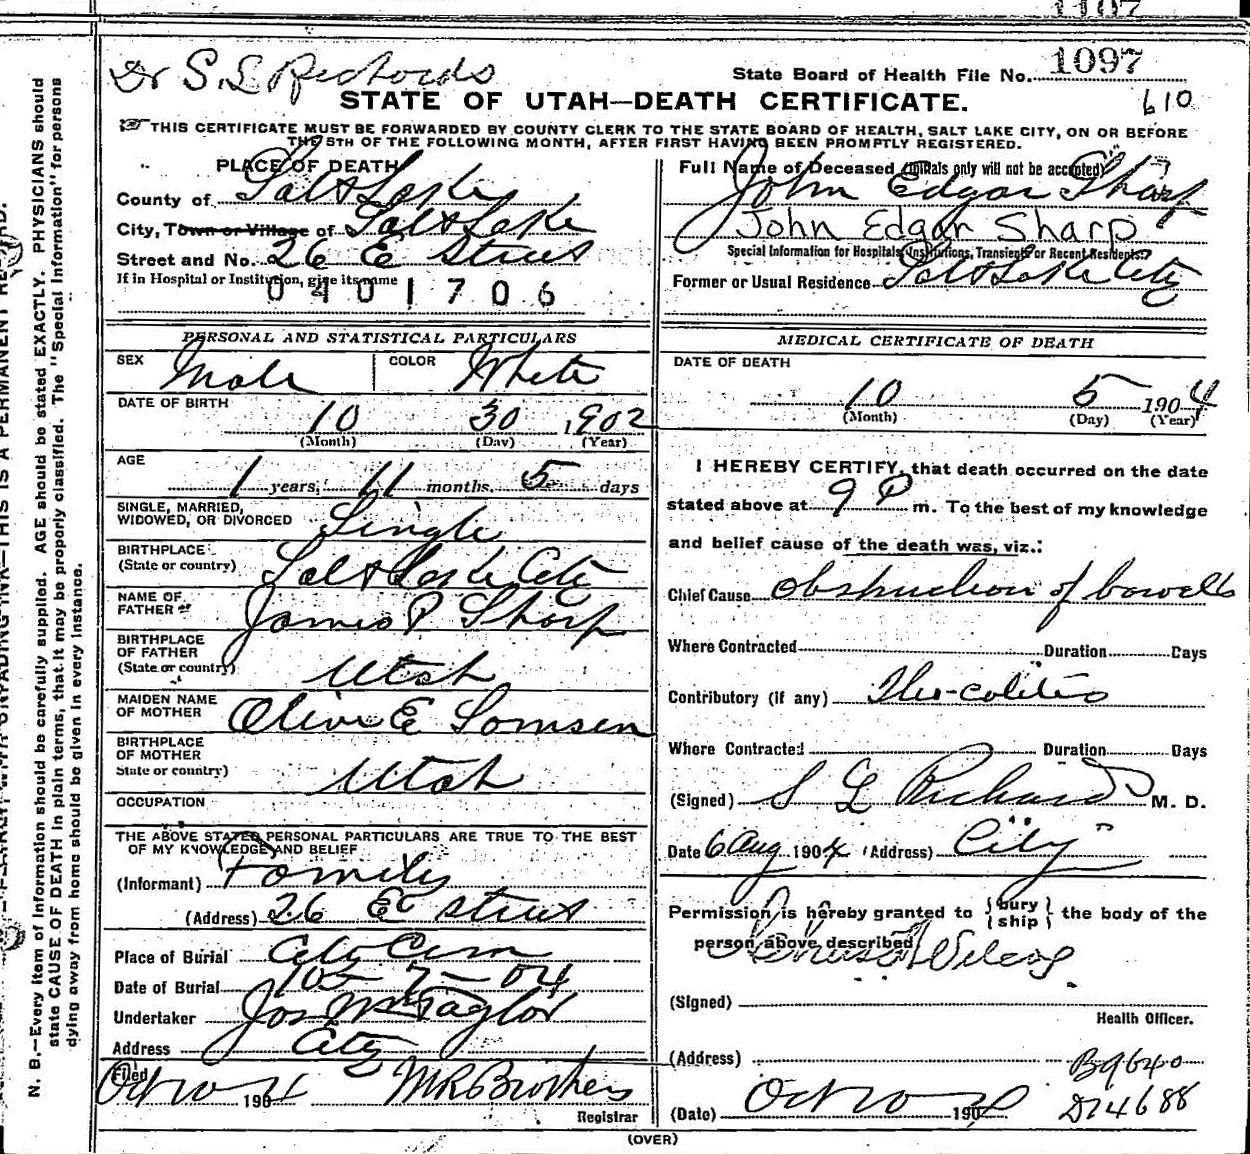 1107
Dr S. L. Richards
State Board of Health File No. 1097
STATE OF UTAH—DEATH CERTIFICATE.
610
THIS CERTIFICATE MUST BE FORWARDED BY COUNTY CLERK TO THE STATE BOARD OF HEALTH, SALT LAKE CITY, ON OR BEFORE
THE 5TH OF THE FOLLOWING MONTH, AFTER FIRST HAVING BEEN PROMPTLY REGISTERED.
PLACE OF DEATH
County of Salt Lake
City, Town or Village of Salt Lake
Street and No. 26 E Street
If in Hospital or Institution, give its name
0401706
Full Name of Deceased (Initials only will not be accepted)
John Edgar Sharp
John Edgar Sharp
Special Information for Hospitals, Institutions, Transients or Recent Residents.
Former or Usual Residence Salt Lake City
PERSONAL AND STATISTICAL PARTICULARS
SEX Male COLOR White
DATE OF BIRTH
10 30 1902
(Month) (Day) (Year)
AGE
1 years, 11 months, 5 days
SINGLE, MARRIED,
WIDOWED, OR DIVORCED Single
BIRTHPLACE
(State or country) Salt Lake City
NAME OF
FATHER James P Sharp
BIRTHPLACE
OF FATHER
(State or country) Utah
MAIDEN NAME
OF MOTHER Olive E
BIRTHPLACE
OF MOTHER
State or country) Utah
OCCUPATION
THE ABOVE STATED PERSONAL PARTICULARS ARE TRUE TO THE BEST
OF MY KNOWLEDGE AND BELIEF
(Informant) Family
(Address) 26 E street
Place of Burial City Cem
Date of Burial 10-7-04
Undertaker Jos Wm Taylor
Address City
Filed Oct 190
Registrar
MEDICAL CERTIFICATE OF DEATH
DATE OF DEATH
10 5 1904
(Month) (Day) (Year)
I HEREBY CERTIFY, that death occurred on the date
stated above at 9 P m. To the best of my knowledge
and belief cause of the death was, viz.:
Chief Cause obstruction of bowells
Where Contracted Duration Days
Contributory (if any) Ileo-colitis
Where Contracted Duration Days
(Signed) S L Richards M. D.
Date 6 Aug 1904 (Address) City
Permission is hereby granted to {bury
ship} the body of the
person above described
(Signed)
Health Officer.
(Address) B9640
D14688
(Date) Oct 190
(OVER)
N. B.—Every item of information should be carefully supplied. AGE should be stated EXACTLY. PHYSICIANS should
state CAUSE OF DEATH in plain terms, that it may be properly classified. The "Special Information" for persons
dying away from home should be given in every instance.